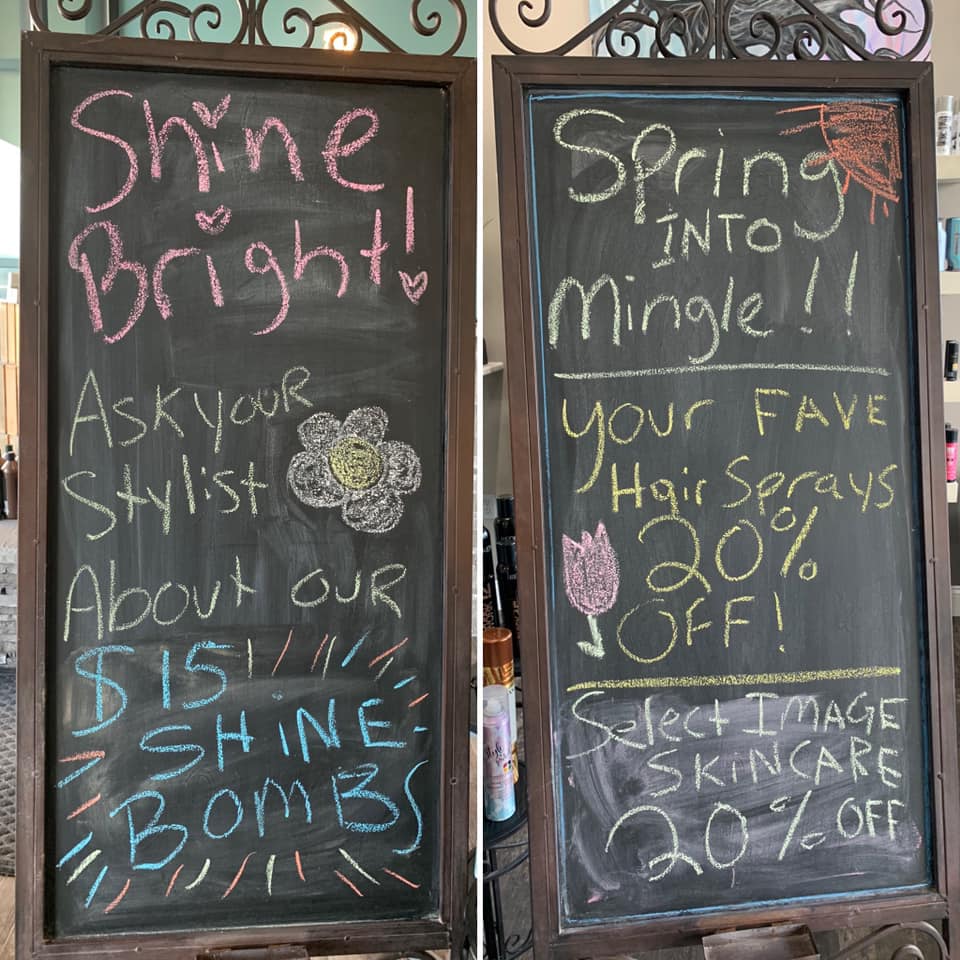 Shine
Bright!
Ask your
Stylist
About our
$15
SHINE
BOMBS
Spring
INTO
Mingle!!
your FAVE
Hair Sprays
20%
OFF!
Select IMAGE
SKINCARE
20% OFF